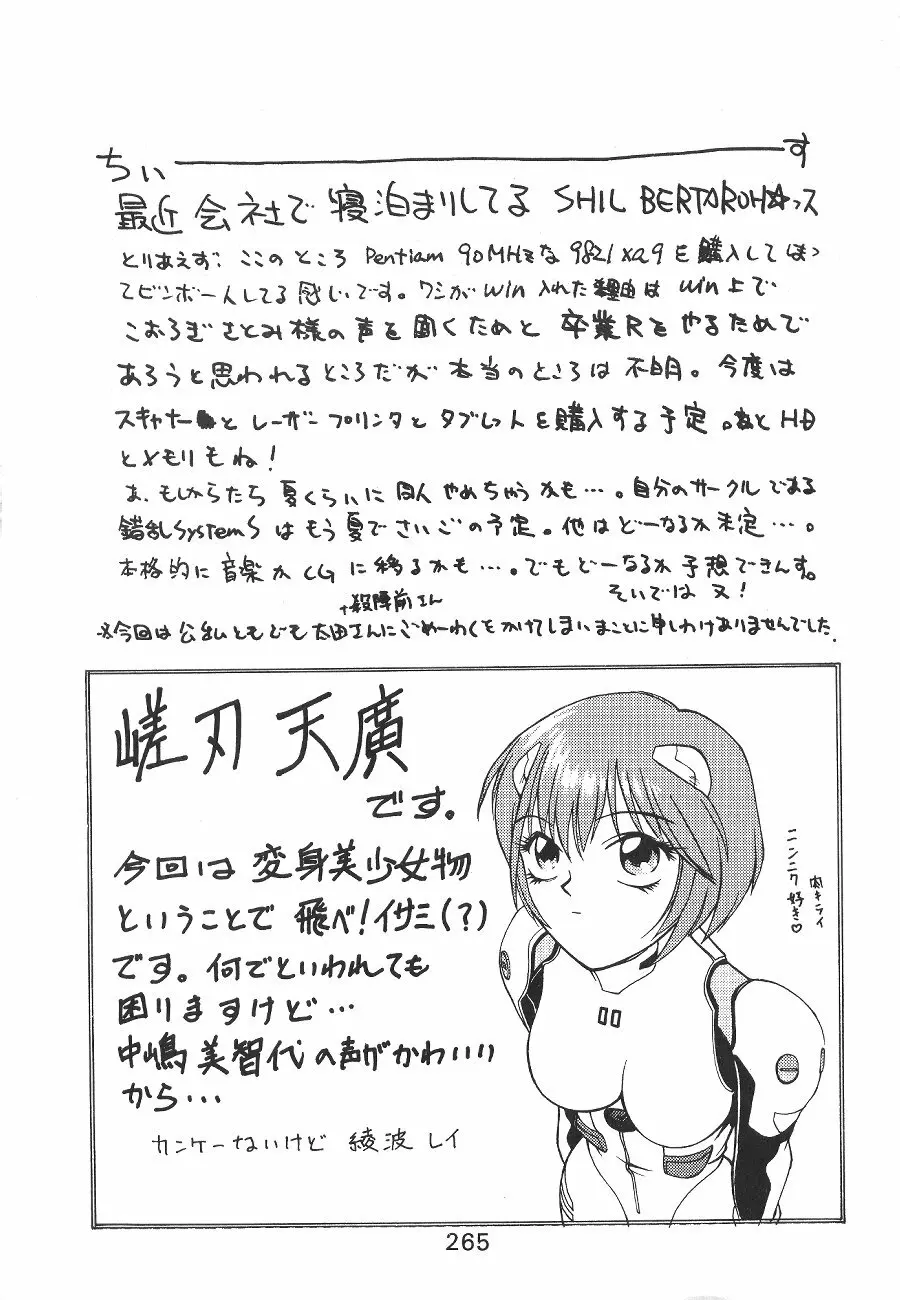 ちぃ――――す
最近会社で寝泊まりしてる SHIL BERTAROH☆っス
とりあえず、ここのところ Pentiam 90MHzな 9821Xa9を購入してほっ
てビンボー人してる感じです。ワシがWin入れた理由はWin上で
こおろぎさとみ様の声を聞くためと卒業Rをやるためで
あろうと思われるところだが本当のところは不明。今度は
スキャナーとレーザープリンタとタブレットを購入する予定。あとHD
とメモリもね!
あ、もしかしたら夏くらいに同人やめちゃうかも…。自分のサークルである
錯乱SystemSはもう夏でさいごの予定。他はどーなるか未定…。
本格的に音楽かCGに移るかも…。でもどーなるか予想できんす。
そいでは又!
殺陣前さん
※今回は公私ともども太田さんにごめーわくをかけてしまいまことに申しわけありませんでした.
嵯刃天廣
です。
今回は変身美少女物
ということで飛べ!イサミ(?)
です。何でといわれても
困りますけど…
中嶋美智代の声がかわいい
から…
カンケーないけど 綾波レイ
ニンニク好き♡
肉キライ
265